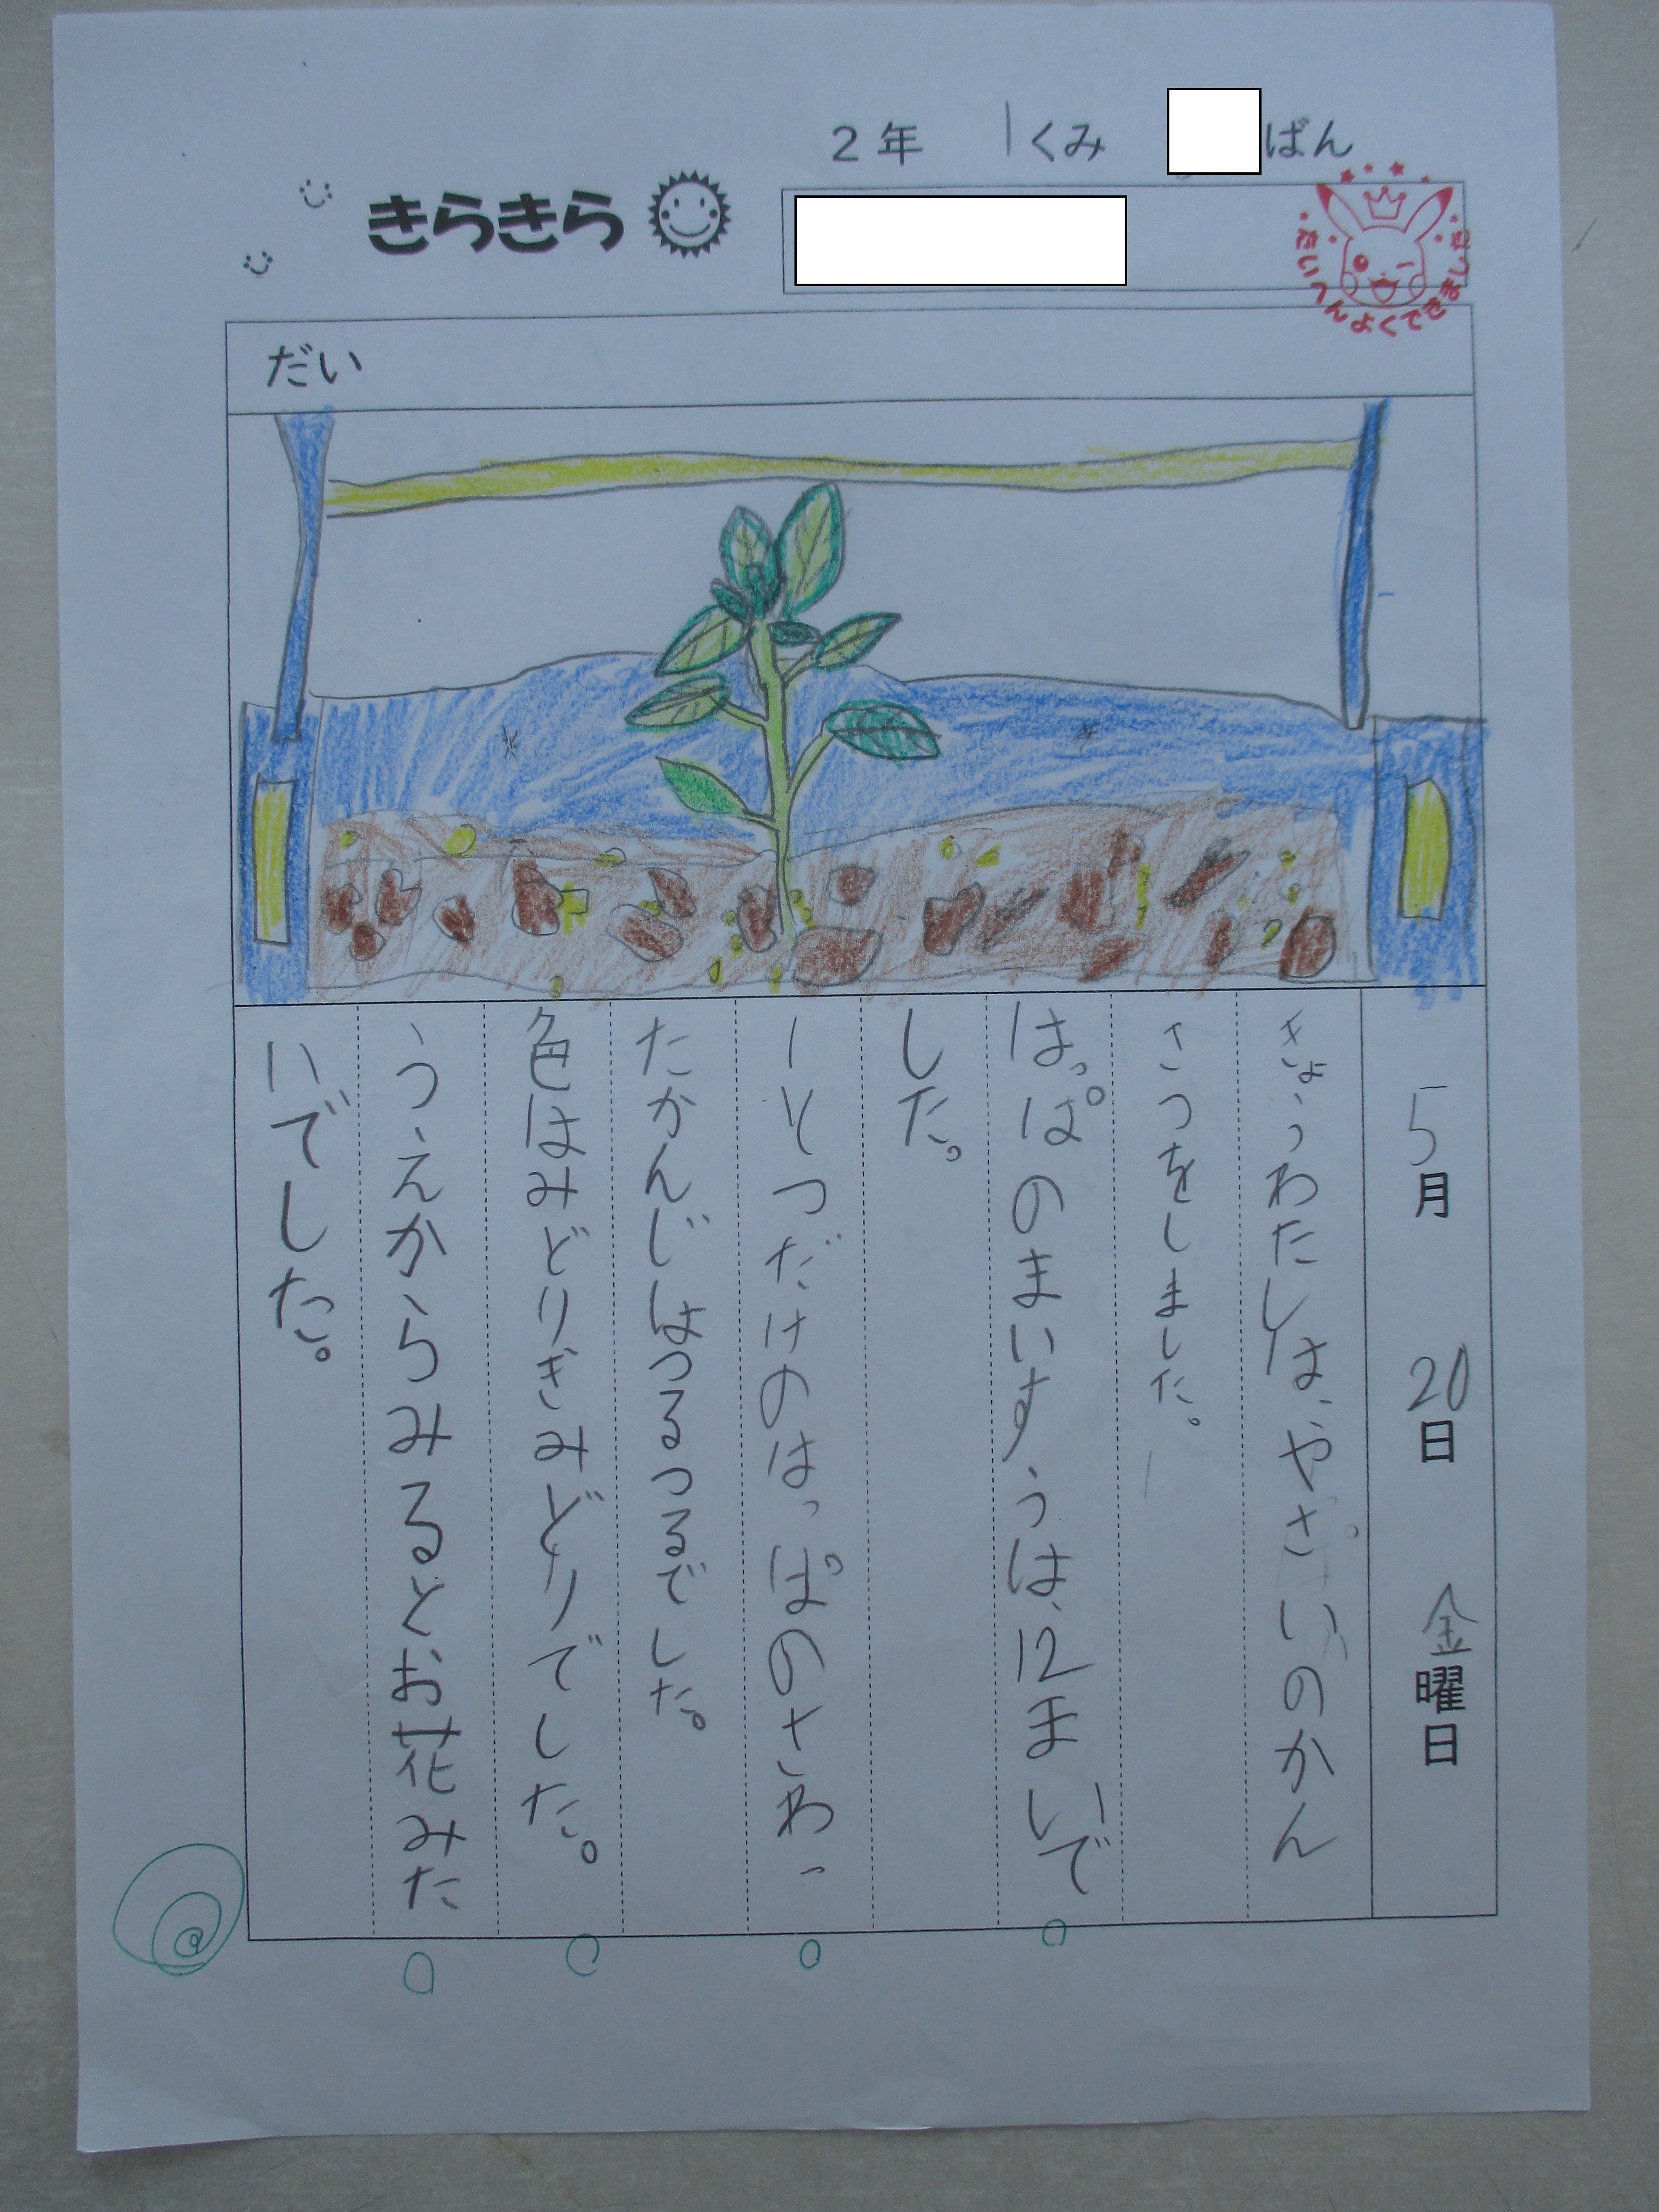 2年 1くみ ばん
きらきら
たいへんよくできました
だい
5月 20日 金曜日
きょうわたしは、やさいのかん
さつをしました。
はっぱのまいすうは、12まいで
した。
一とつだけのはっぱのさわっ
たかんじはつるつるでした。
色はみどりときみどりでした。
うえからみるとお花みた
いでした。